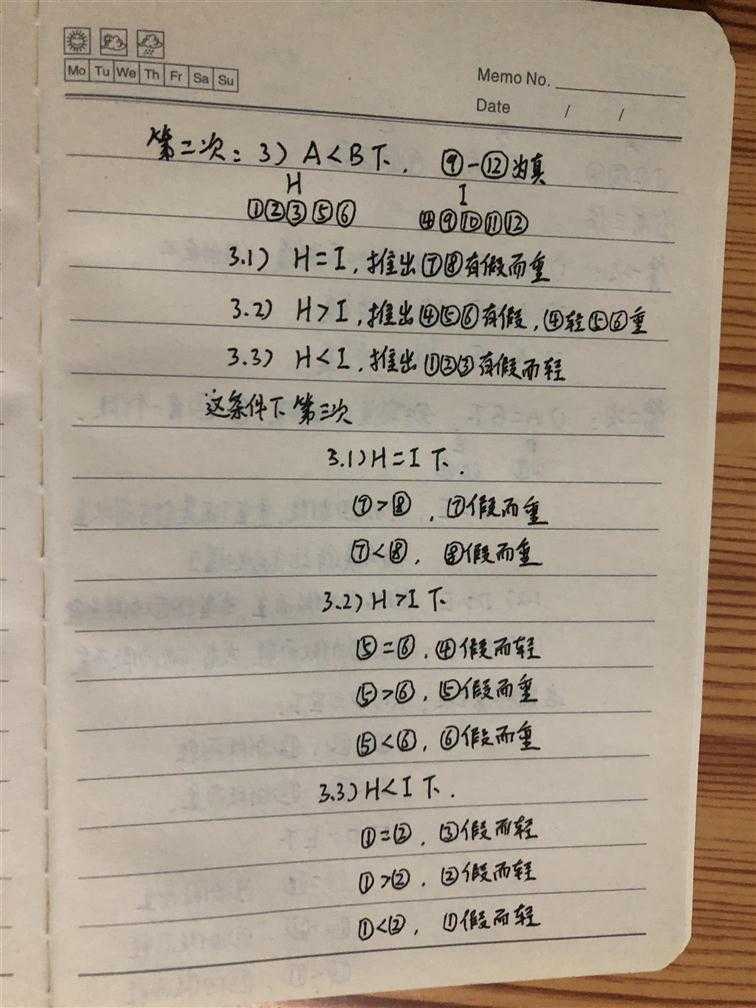 Mo Tu We Th Fr Sa Su
Memo No.
Date / /
第二次：3）A<B下．⑨-⑫为真
H I
①②③⑤⑥ ④⑨⑩⑪⑫
3.1） H=I，推出⑦⑧有假而重
3.2） H>I，推出④⑤⑥有假，④轻⑤⑥重
3.3） H<I，推出①②③有假而轻
这条件下第三次
3.1）H=I下．
⑦>⑧，⑦假而重
⑦<⑧，⑧假而重
3.2）H>I下
⑤=⑥，④假而轻
⑤>⑥，⑤假而重
⑤<⑥，⑥假而重
3.3）H<I下．
①=②，③假而轻
①>②，②假而轻
①<②，①假而轻